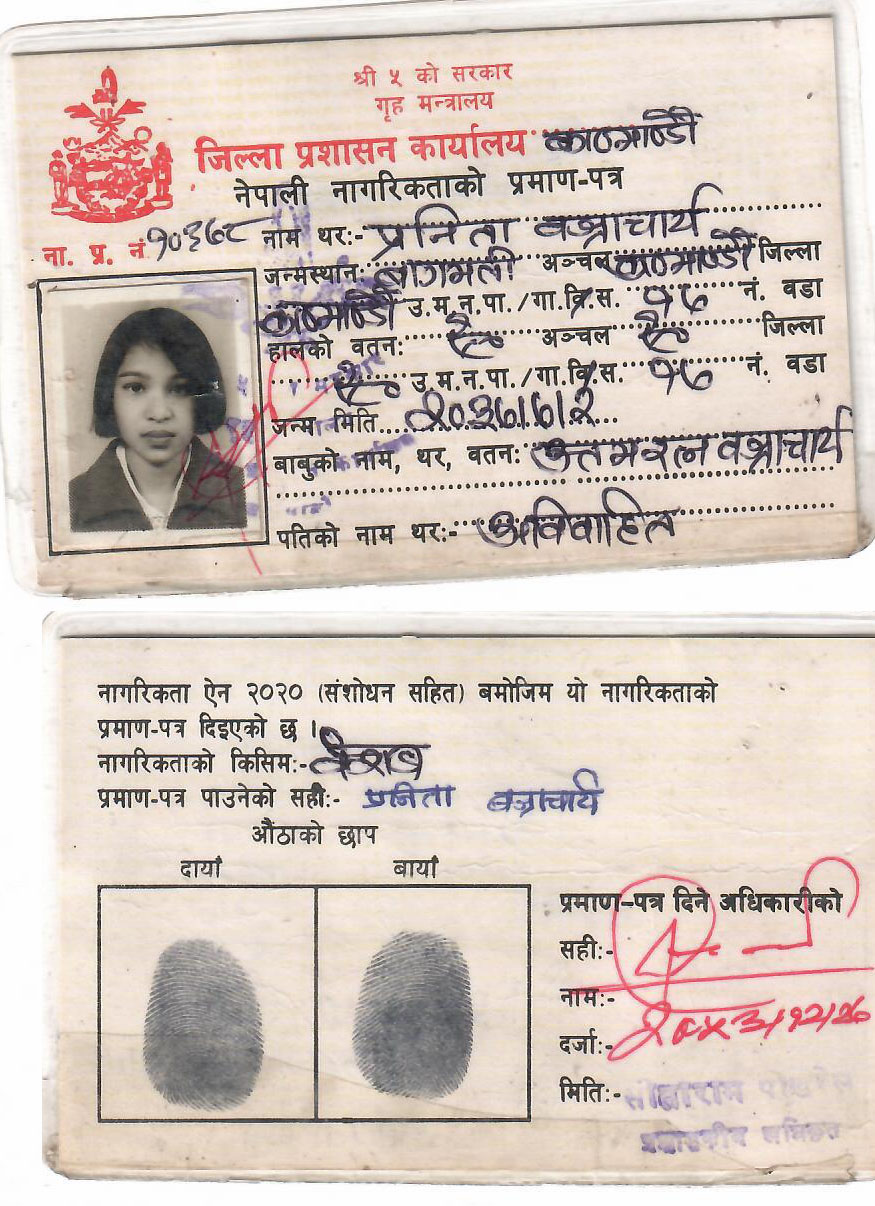 श्री ५ को सरकार
गृह मन्त्रालय
जिल्ला प्रशासन कार्यालय काठमाण्डौ
नेपाली नागरिकताको प्रमाण-पत्र
ना. प्र. नं १०३६८
नाम थर:- प्रनिता बज्राचार्य
जन्मस्थान: बागमती अञ्चल काठमाण्डौ जिल्ला
काठमाण्डौ उ.म.न.पा./गा.वि.स. १७ नं. वडा
हालको वतन: ऐ अञ्चल ऐ जिल्ला
ऐ उ.म.न.पा./गा.वि.स. १७ नं. वडा
जन्म मिति २०३६।७।१२
बाबुको नाम, थर, वतन: उत्तमरत्न बज्राचार्य
पतिको नाम थर:- अविवाहित
नागरिकता ऐन २०२० (संशोधन सहित) बमोजिम यो नागरिकताको
प्रमाण-पत्र दिइएको छ ।
नागरिकताको किसिम:- वंशज
प्रमाण-पत्र पाउनेको सही:- प्रनिता बज्राचार्य
औंठाको छाप
दायाँ बायाँ
प्रमाण-पत्र दिने अधिकारीको
सही:-
नाम:-
दर्जा:-
मिति:-